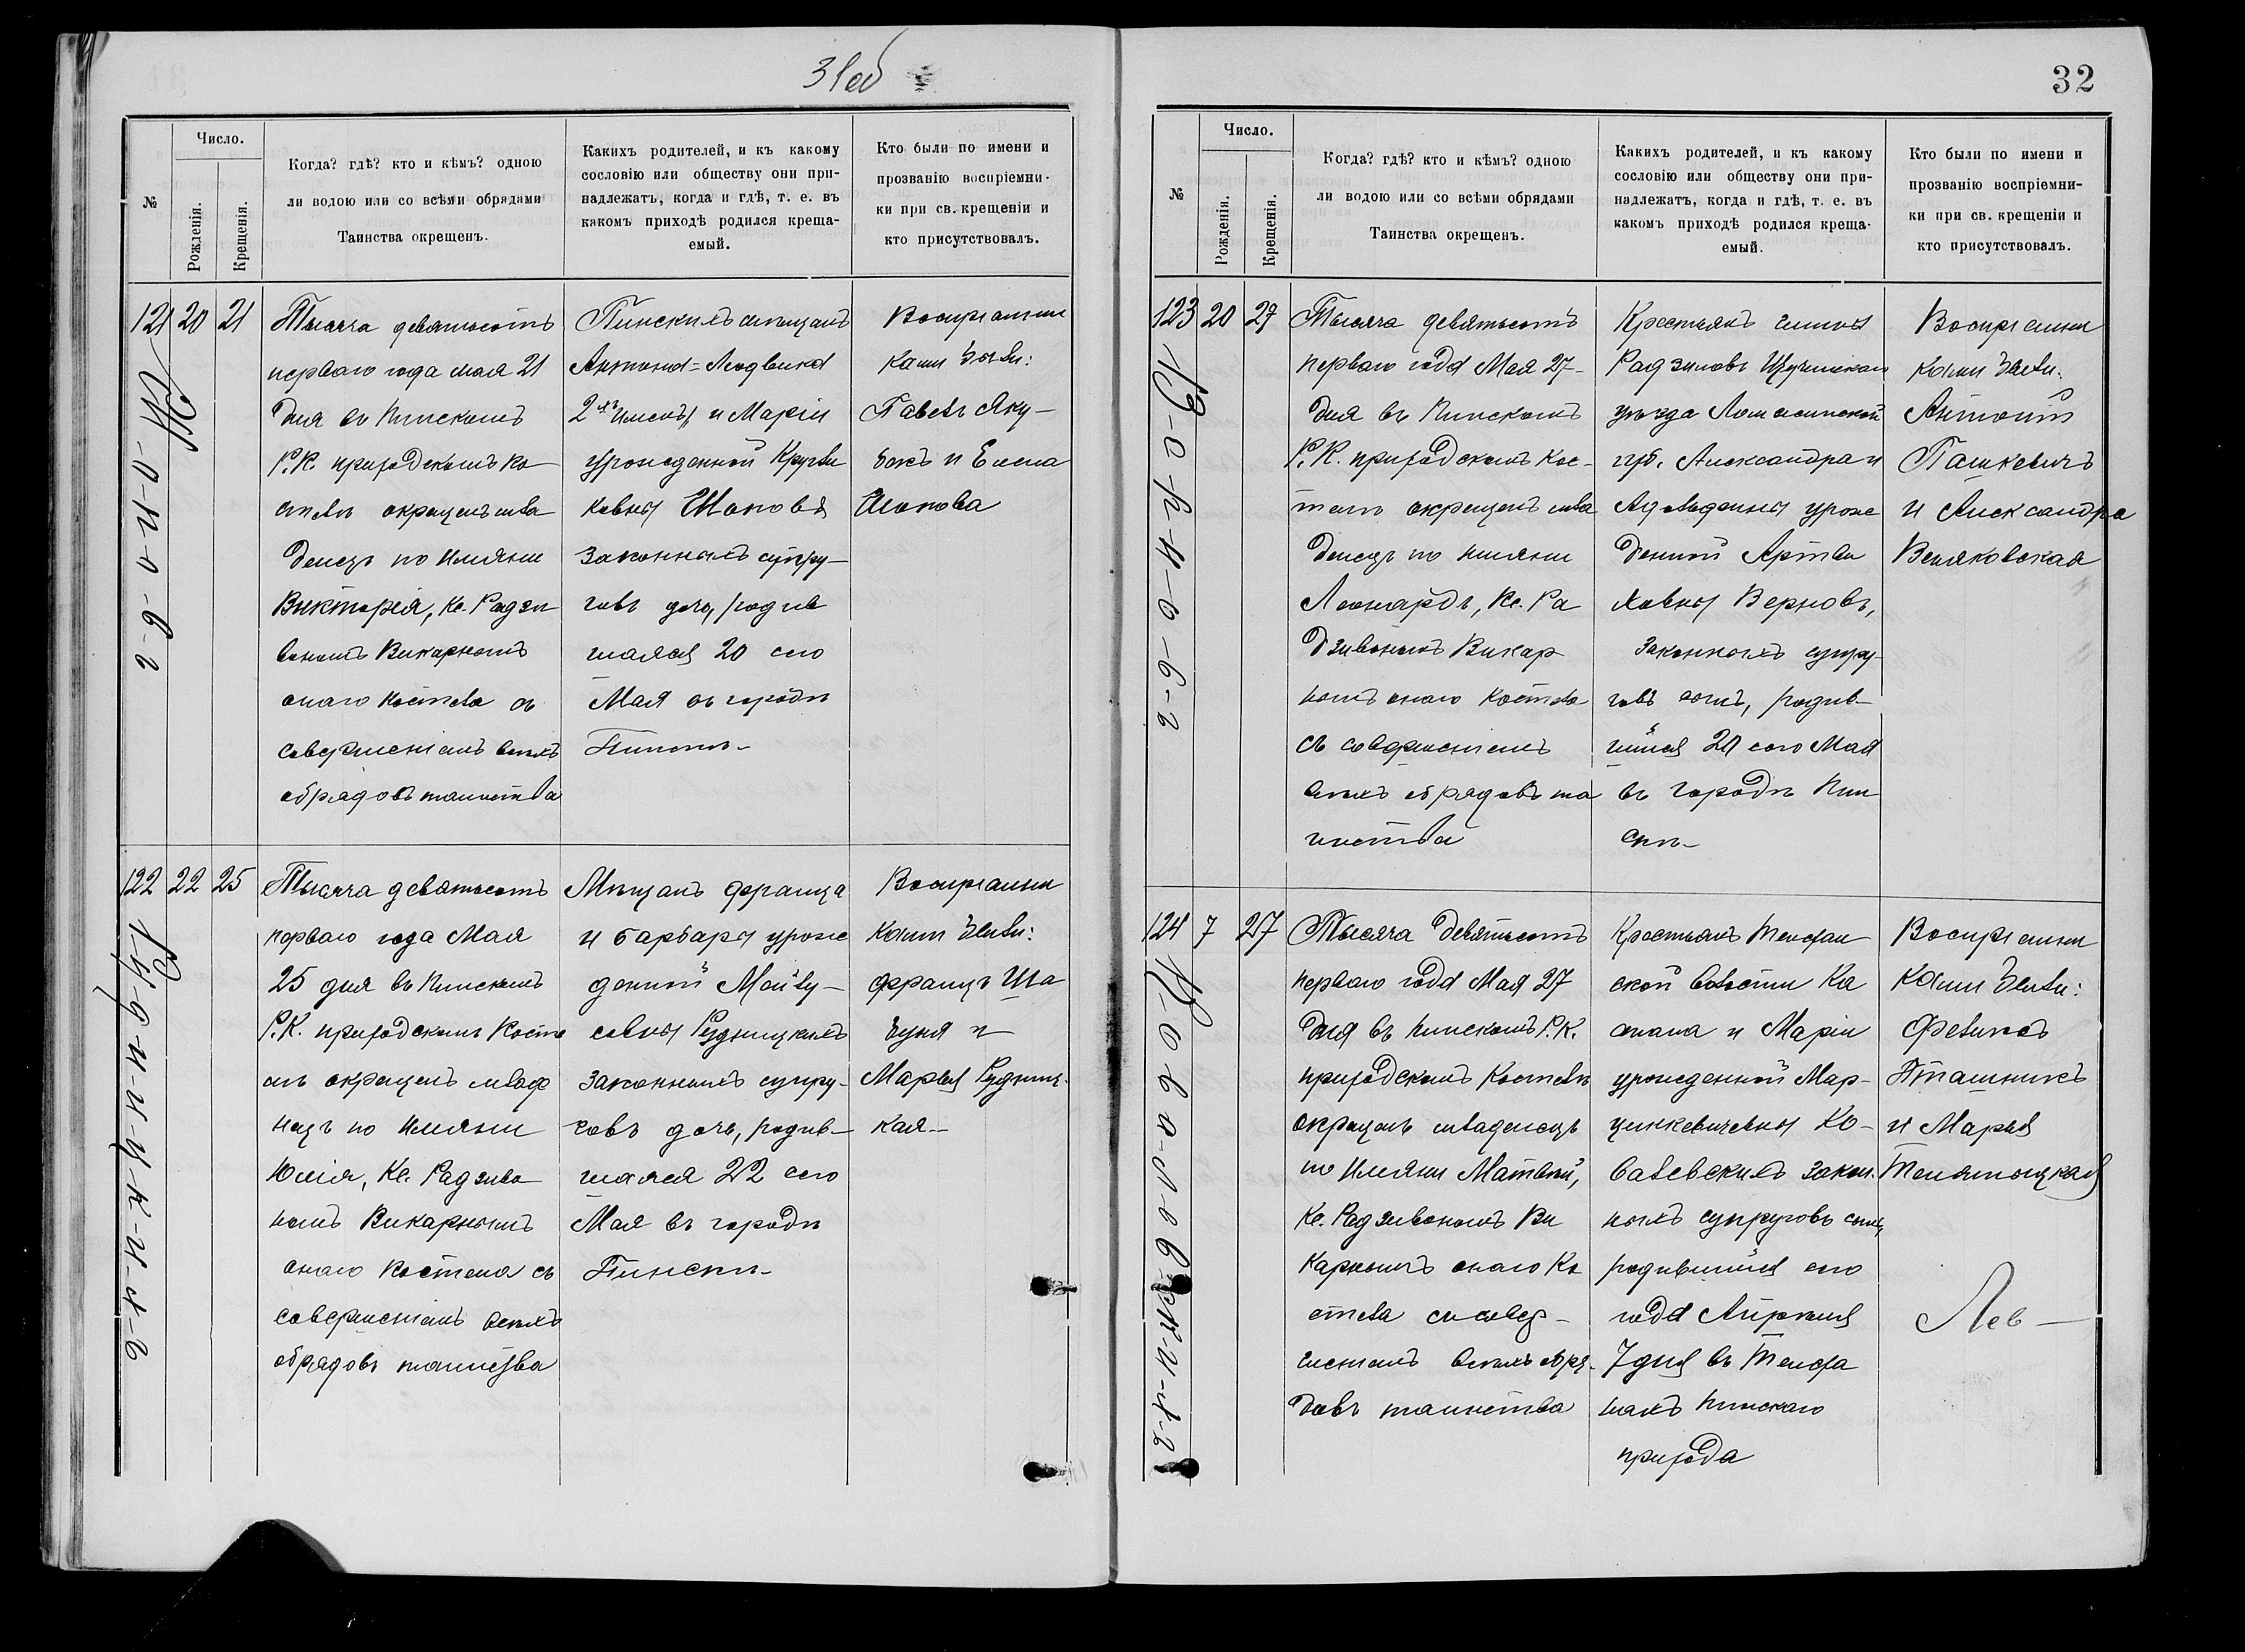 31об
№
Число.
Рожденія.
Крещенія.
Когда? гдѣ? кто и кѣмъ? одною
ли водою или со всѣми обрядами
Таинства окрещенъ.
Какихъ родителей, и къ какому
сословію или обществу они при-
надлежатъ, когда и гдѣ, т. е. въ
какомъ приходѣ родился креща-
емый.
Кто были по имени и
прозванію воспріемни-
ки при св. крещеніи и
кто присутствовалъ.
121 20 21
Тысяча девятьсотъ
перваго года мая 21
дня въ Пинскомъ
Р. К. приходскомъ ко
стелѣ окрещенъ мла
денецъ по имяни
Викторія, Кс. Радзи
вономъ Викарнымъ
онаго костела съ
совершеніемъ всѣхъ
обрядовъ таинства
Пинскихъ мѣщанъ
Антона-Людвика
2хъ именъ, и Маріи
урожденной Кругли
ковны Шоповъ
законныхъ супру-
говъ дочь, родив
шаяся 20 сего
Мая въ городѣ
Пинскѣ-
Воспріемни
ками были:
Павелъ Яку-
бокъ и Елена
Шопова
122 22 25
Тысяча девятьсотъ
перваго года Мая
25 дня въ Пинскомъ
Р. К. приходскомъ Косте
лѣ окрещенъ младе
нецъ по имяни
Юлія, Кс. Радзиво
номъ Викарнымъ
онаго Костела съ
совершеніемъ всѣхъ
обрядовъ таинства
Мѣщанъ Франца
и Барбары урож
денной Мойсу-
совны Рудницкихъ
законныхъ супру-
говъ дочь, родив-
шаяся 22 сего
Мая въ городѣ
Пинскѣ-
Воспріемни
ками были:
Францъ Ша
буня и
Марья Рудниц-
кая-
32
№
Число.
Рожденія.
Крещенія.
Когда? гдѣ? кто и кѣмъ? одною
ли водою или со всѣми обрядами
Таинства окрещенъ.
Какихъ родителей, и къ какому
сословію или обществу они при-
надлежатъ, когда и гдѣ, т. е. въ
какомъ приходѣ родился креща-
емый.
Кто были по имени и
прозванію воспріемни-
ки при св. крещеніи и
кто присутствовалъ.
123 20 27
Тысяча девятьсотъ
перваго года Мая 27-
дня въ Пинскомъ
Р. К. приходскомъ Кос-
телѣ окрещенъ мла
денецъ по имяни
Леонардъ, Кс. Ра
дзивономъ Викар
нымъ онаго Костела
съ совершеніемъ
всѣхъ обрядовъ та
инства
Крестьянъ гмины
Радзиловъ Щучинскаго
уѣзда Ломжинской
губ. Александра и
урож
денной
Верновъ,
законныхъ супру-
говъ сынъ, родив-
шійся 20 сего Мая
въ городѣ Пин
скѣ-
Воспріемни
ками были:
Антонъ
Пашкевичъ
и Александра
Веняковская
124 7 27
Тысяча девятьсотъ
перваго года Мая 27
дня въ Пинскомъ Р. К.
приходскомъ Костелѣ
окрещенъ младенецъ
по имяни Матвѣй,
Кс. Радзивономъ Ви
карнымъ онаго Ко
стела съ совер-
шеніемъ всѣхъ обря-
довъ таинства
Крестьянъ Телехан
ской волости Ка
и Маріи
урожденной Мар-
цинкевичевны Ко-
валевскихъ закон-
ныхъ супруговъ сынъ,
родившійся сего
года Апрѣля
7 дня въ Телеха
нахъ Пинскаго
прихода
Воспріемни
ками были:
Феликсъ
Пташникъ
и Марья
Лев-